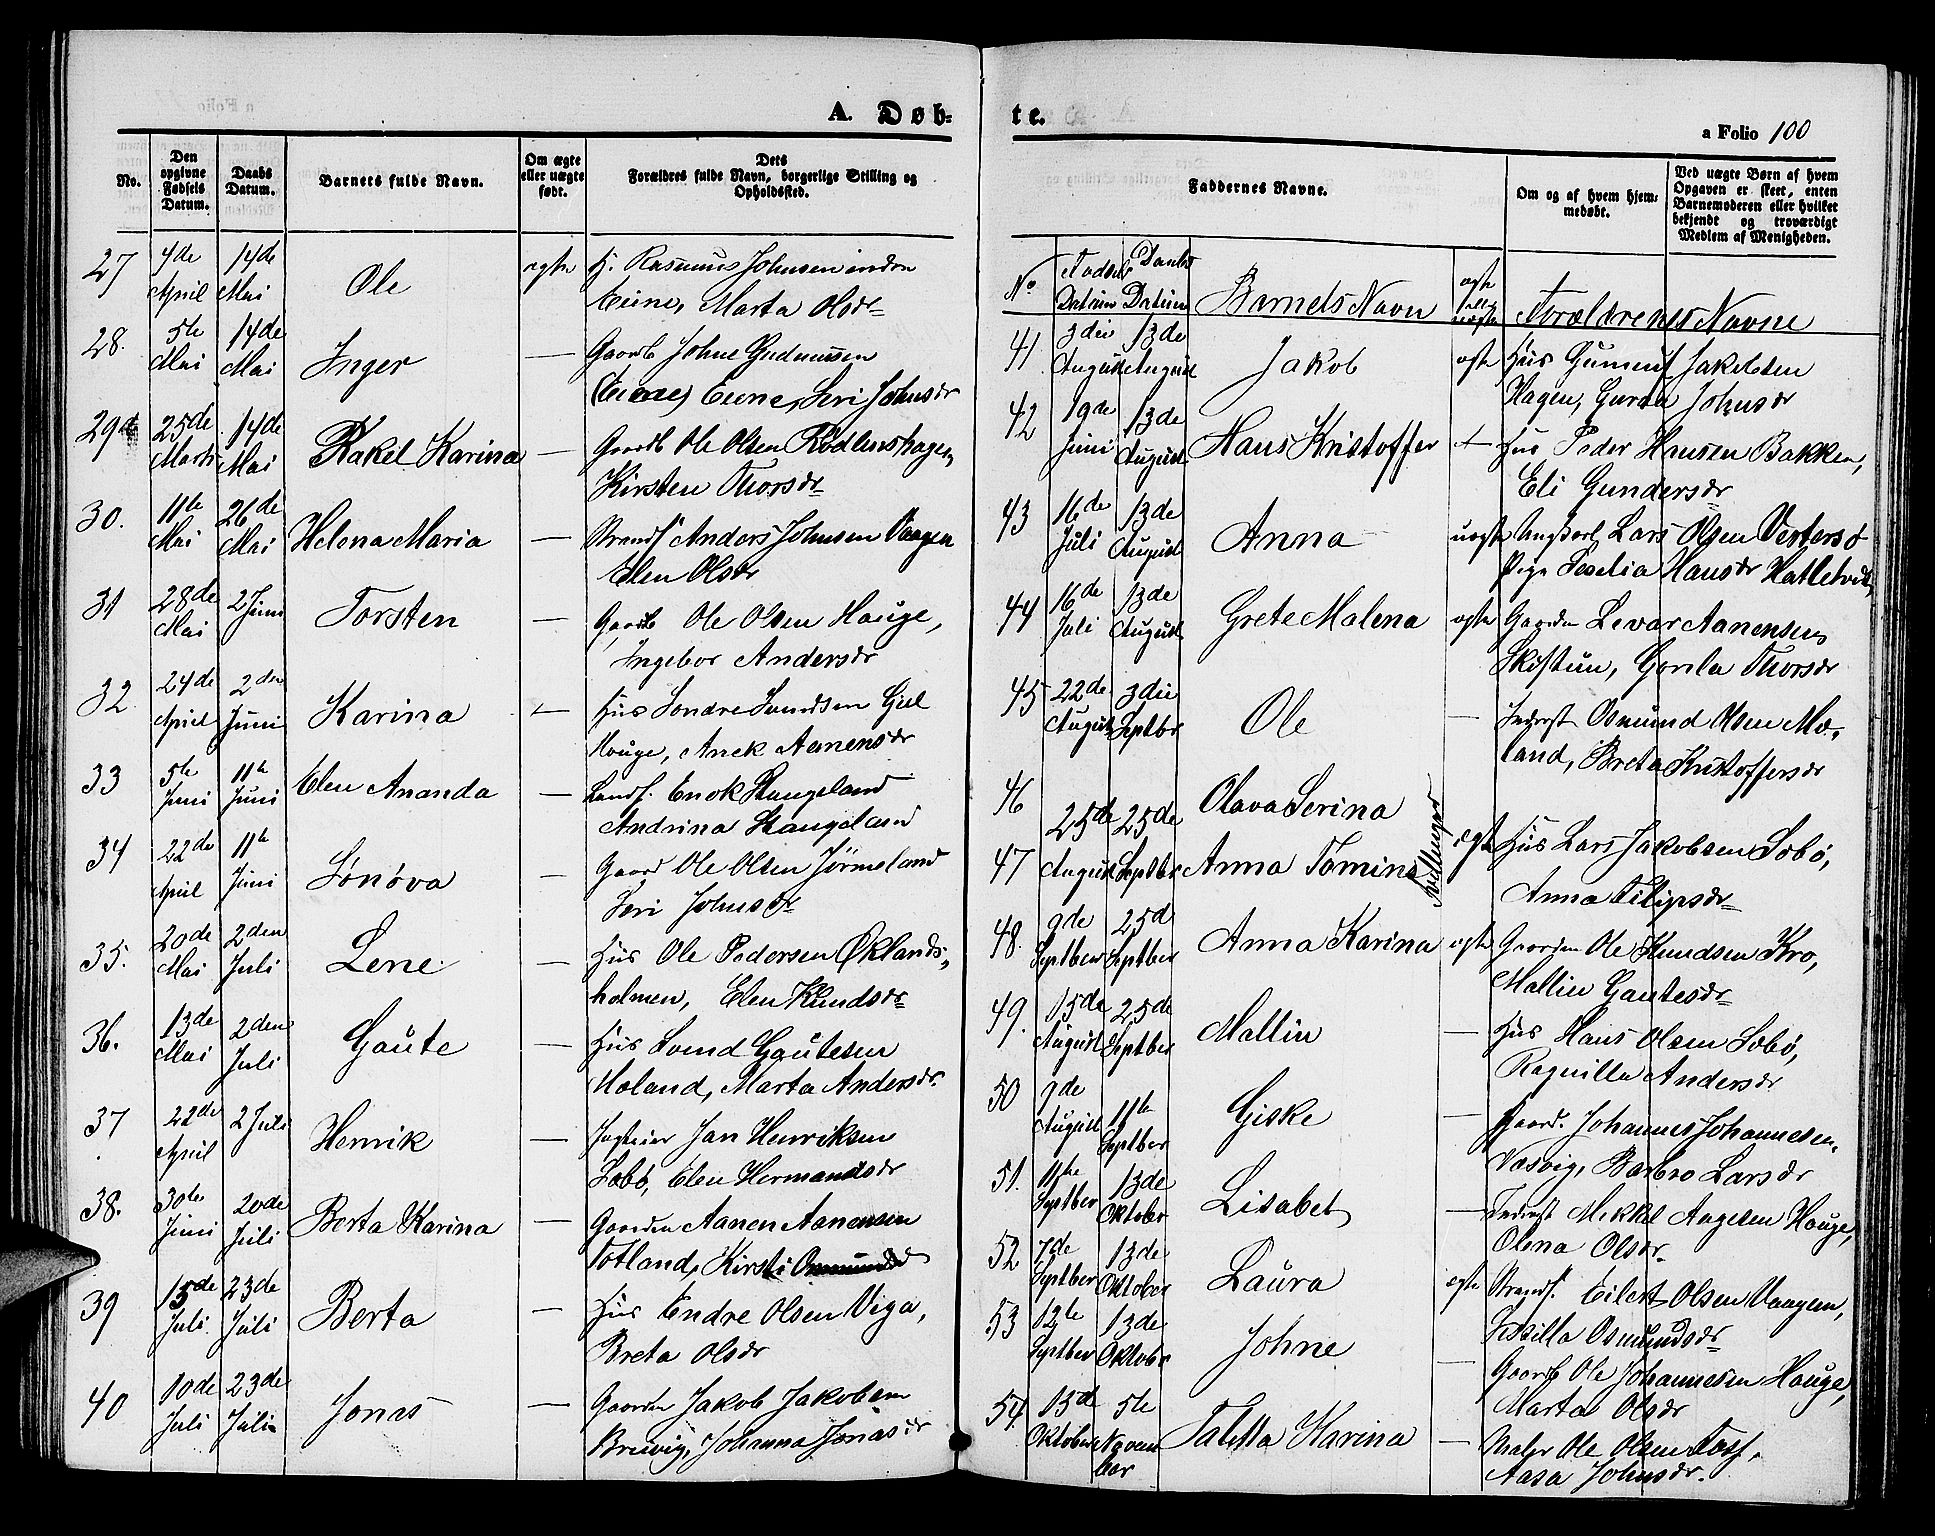 A. Døb-
No.
Den opgivne Fødsels Datum.
Daabs Datum.
Barnets fulde Navn.
Om ægte eller uægte født.
Dets Forældres fulde Navn, borgerlige Stilling og Opholdssted.
27 4de April 14de Mai Ole egte H. Rasmus Johnsen
Eiene, Marta Olsdr
28. 5te Mai 14de Mai Inger — Gaardb Johne Gudmusen
(Eiene) Eiene, Seri Johnsdr
29 25de Marts 14de Mai Rakel Karina — Gaardb Ole Olsen Rödlenshagen,
Kirsten Thorsdr
30. 11te Mai 26de Mai Helena Maria — Strands. Anders Johnsen Vaagen
Elen Olsdr
31 28de Mai 2 Juni Torsten — Gaardb Ole Olsen Houge,
Ingebor Andersdr
32 24de April 2den Juni Karina — Hus Sondre Svendsen Giel
Houge, Anek Aanensdr
33 5te Juni 11te Juni Elen Ananda — Lands. Enok Haugeland
Andrina Haugeland
34 22de April 11te Juni Sönöva — Gaard Ole Olsen Jörmeland
Seri Johnsdr
35. 20de Mai 2den Juli Lene — Hus Ole Pedersen Øklands-
holmen, Elen Knudsdr
36. 13de Mai 2den Juli Gaute — Hus Svend Gautesen
Moland, Marta Andersdr.
37 22de April 2 Juli Henrik — Jan Henriksen
Söbö, Elen Hermandsdr
38. 30te Juni 20de Juli Berta Karina — Gaarden Aanen Aanensen
Totland, Kirsti
39 15de Juli 23de Juli Berta — Hus Endre Olsen Viga,
Breta Olsdr
40 10de Juli 23de Juli Jonas — Gaarden Jakob Jakobsen
Brevig, Johanna Jonasdr
te.
a Folio 100
Faddernes Navne.
Om og af hvem hjemmedøbt.
Ved uægte Børn af hvem Opgaven er skeet, enten Barnemoderen eller hvilket bekjendt og troværdigt Medlem af Menigheden.
No Fødsels Datum Daabs Datum Barnets Navn egte eller uegte Forældrenes Navne
41. 3die August 13de August Jakob egte Hus Gumeus Jakobsen
Hagen, Guroe Johnsdr
42 19de Juni 13de August Hans Kristoffer — Hus Peder Hansen Bakken,
Eli Gundersdr
43 16de Juli 13de August Anna uegte Ungkarl Lars Olsen Vestersö
Pige Seselia Hansdr Hattelvik,
44 16de Juli 13de August Grete Malena egte Gaarden Levar Aanensen,
Skistun, Gorela Thorsdr
45 22de August 3die Septbr Ole — Inderst Osmund Olsen Mo-
land, Breta Kristoffersdr
46 Olava Serina
25de August 25de Septbr Tvillinger egte Hus Lars Jakobsen Söbö,
47 Anna Tomina
Anna Filipsdr
48. 9de Septber 25d Septber Anna Karina egte Gaarden Ole Knudsen Kro,
Mallin Gautesdr
49. 15de August 25de Septber Mallin — Hus Hans Olsen Söbö,
Ragnilla Andersdr
50 9de August 11te Septber Giske — Gaard. Johannes Johannesen,
Vasvig, Barbro Larsdr
51. 11te Septber 13de Oktober Lisabet — Inderst Mikkel Angelsen Houge,
Olena Olsdr
52 7de Septber 13de Oktober Laura egte Strands. Eilert Olsen Vaagen,
Sisilla Osmundsdr
53 12te Septber 13de Oktober Johne — Gaardb Ole Johannesen Houge,
Marta Olsdr
54 13d Oktober 5te November Taletta Karina — Maler Ole Olsen
Aasa Johnsdr.